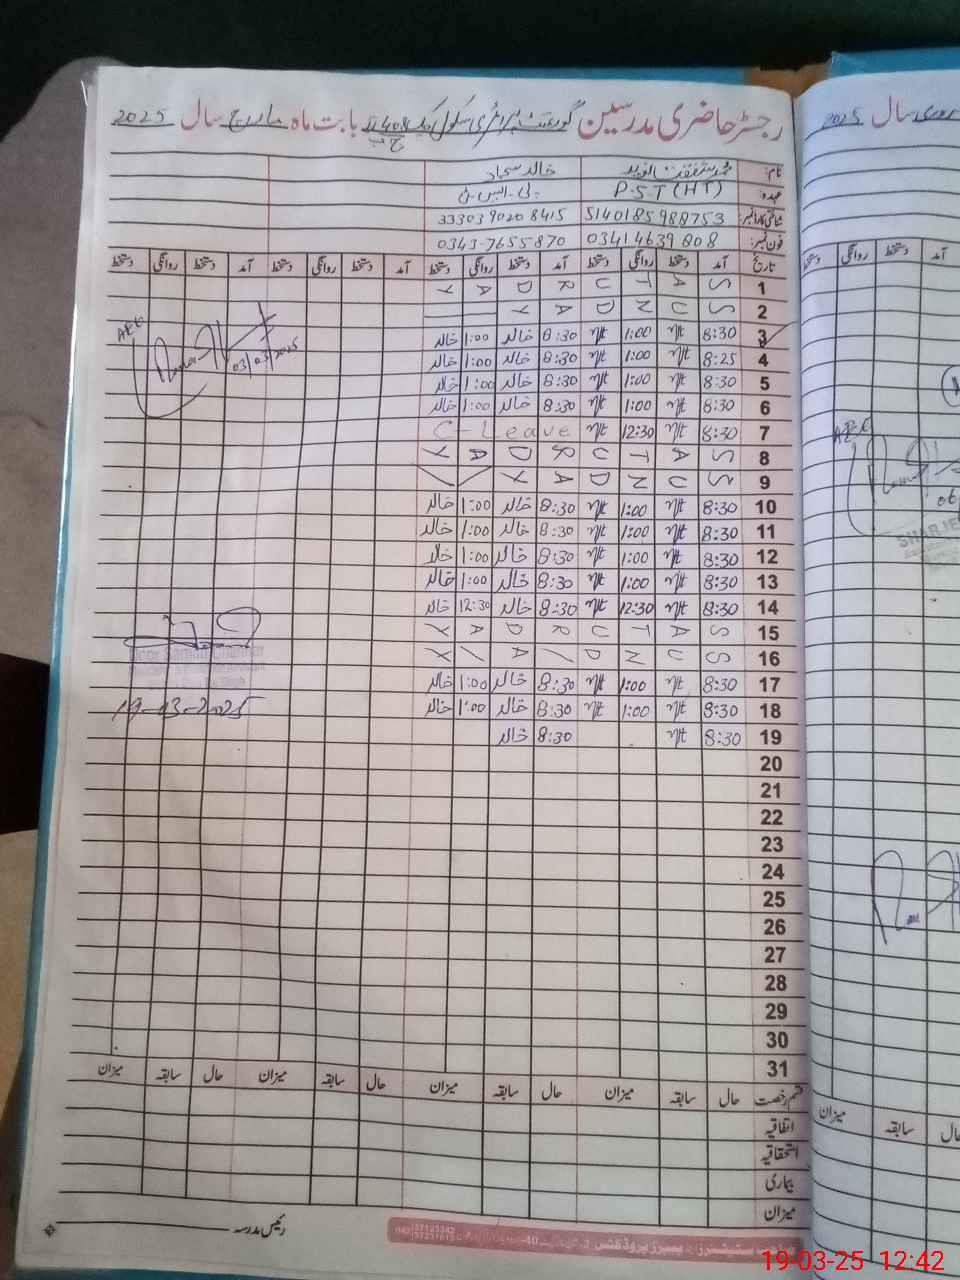 رجسٹر حاضری مدرسین گورنمنٹ پرائمری سکول چک 408 ج ب بابت ماہ مارچ سال 2025
نام: خالد سجاد
عہدہ: P.S.T (HT) پی۔ایس۔ٹی
شناختی کارڈ نمبر: 5140185988753 3330390208415
فون نمبر: 03414639808 0343-7655870
تاریخ آمد دستخط روانگی دستخط آمد دستخط روانگی دستخط آمد دستخط روانگی دستخط آمد دستخط روانگی دستخط
1 S A T U R D A Y
2 S U N D A Y
3 8:30 1:00 8:30 خالد 1:00 خالد
4 8:25 1:00 8:30 خالد 1:00 خالد
5 8:30 1:00 8:30 خالد 1:00 خالد
6 8:30 1:00 8:30 خالد 1:00 خالد
7 8:30 12:30 C-Leave
8 S A T U R D A Y
9 S U N D A Y
10 8:30 1:00 8:30 خالد 1:00 خالد
11 8:30 1:00 8:30 خالد 1:00 خالد
12 8:30 1:00 8:30 خالد 1:00 خالد
13 8:30 1:00 8:30 خالد 1:00 خالد
14 8:30 12:30 8:30 خالد 12:30 خالد
15 S A T U R D A Y
16 S U N D A Y
17 8:30 1:00 8:30 خالد 1:00 خالد
18 8:30 1:00 8:30 خالد 1:00 خالد
19 8:30 8:30 خالد
20
21
22
23
24
25
26
27
28
29
30
31
قسم رخصت حال سابقہ میزان حال سابقہ میزان حال سابقہ میزان حال سابقہ میزان
اتفاقیہ
استحقاقیہ
بیماری
میزان
رئیس مدرسہ
AEO
03/03/2025
19-03-2025
سال 2025
آمد دستخط روانگی دستخط
AEO
06
حال سابقہ میزان
19-03-25 12:42